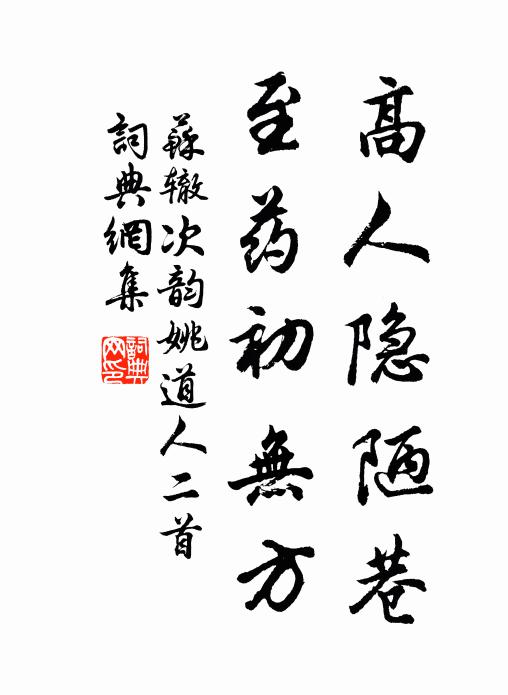 高人隐陋巷
至药初無方
蘇辙次韵姚道人二首
詞典網集
詞典网印